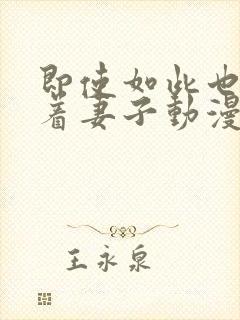 即使如此也
着妻子動漫
王永泉